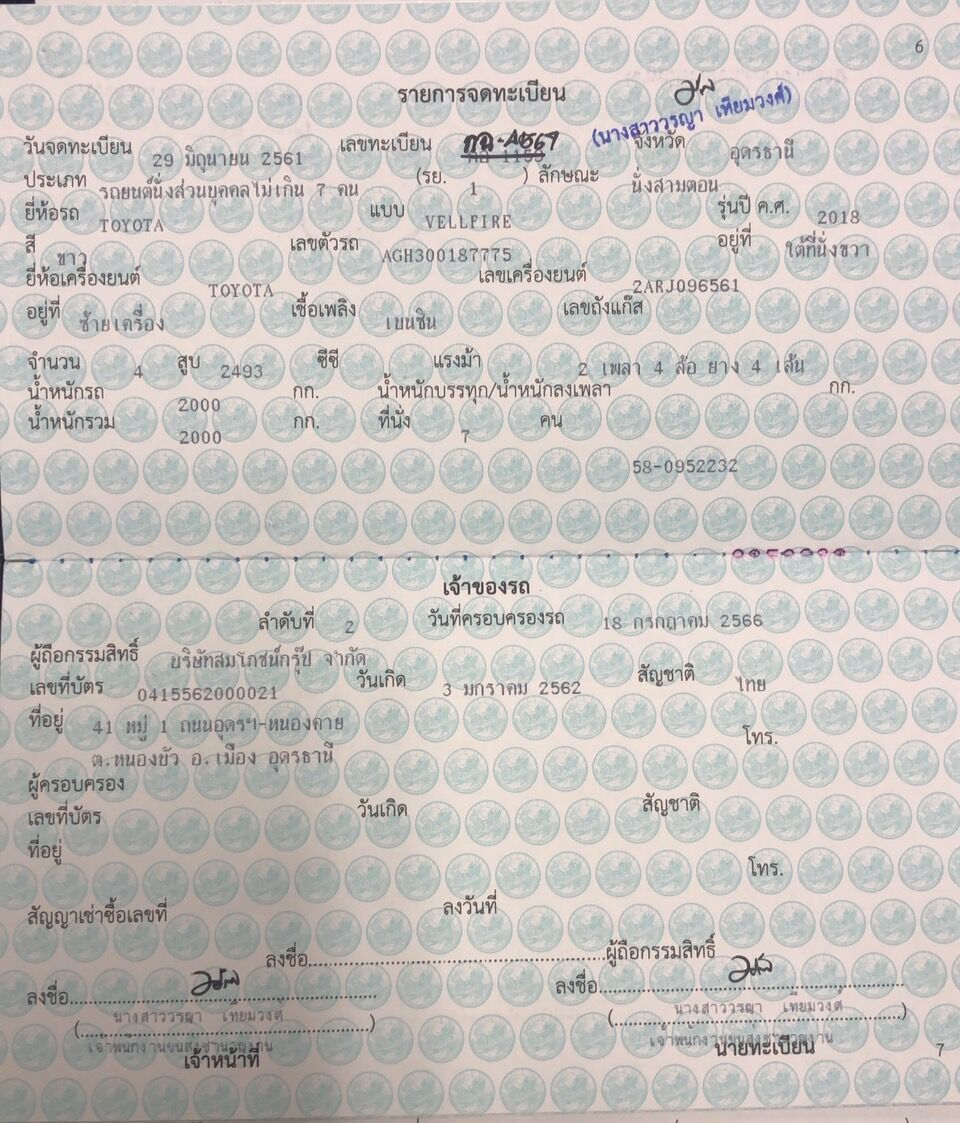 6
รายการจดทะเบียน
(นางสาววรญา เทียมวงศ์)
วันจดทะเบียน 29 มิถุนายน 2561 เลขทะเบียน จังหวัด อุดรธานี
ประเภท รถยนต์นั่งส่วนบุคคลไม่เกิน 7 คน (รย. 1 ) ลักษณะ นั่งสามตอน
ยี่ห้อรถ TOYOTA แบบ VELLFIRE รุ่นปี ค.ศ. 2018
สี ขาว เลขตัวรถ AGH300187775 อยู่ที่ ใต้ที่นั่งขวา
ยี่ห้อเครื่องยนต์ TOYOTA เลขเครื่องยนต์ 2ARJ096561
อยู่ที่ ซ้ายเครื่อง เชื้อเพลิง เบนซิน เลขถังแก๊ส
จำนวน 4 สูบ 2493 ซีซี แรงม้า 2 เพลา 4 ล้อ ยาง 4 เส้น
น้ำหนักรถ 2000 กก. น้ำหนักบรรทุก/น้ำหนักลงเพลา กก.
น้ำหนักรวม 2000 กก. ที่นั่ง 7 คน
58-0952232
เจ้าของรถ
ลำดับที่ 2 วันที่ครอบครองรถ 18 กรกฎาคม 2566
ผู้ถือกรรมสิทธิ์ บริษัทสมโภชน์กรุ๊ป จำกัด
เลขที่บัตร 0415562000021 วันเกิด 3 มกราคม 2562 สัญชาติ ไทย
ที่อยู่ 41 หมู่ 1 ถนนอุดรฯ-หนองคาย
ต.หนองบัว อ.เมือง อุดรธานี โทร.
ผู้ครอบครอง
เลขที่บัตร วันเกิด สัญชาติ
ที่อยู่
โทร.
สัญญาเช่าซื้อเลขที่ ลงวันที่
ลงชื่อ ผู้ถือกรรมสิทธิ์
ลงชื่อ ลงชื่อ
(นางสาววรญา เทียมวงศ์) (นางสาววรญา เทียมวงศ์)
เจ้าพนักงานขนส่งชำนาญงาน เจ้าพนักงานขนส่งชำนาญงาน
เจ้าหน้าที่ นายทะเบียน
7